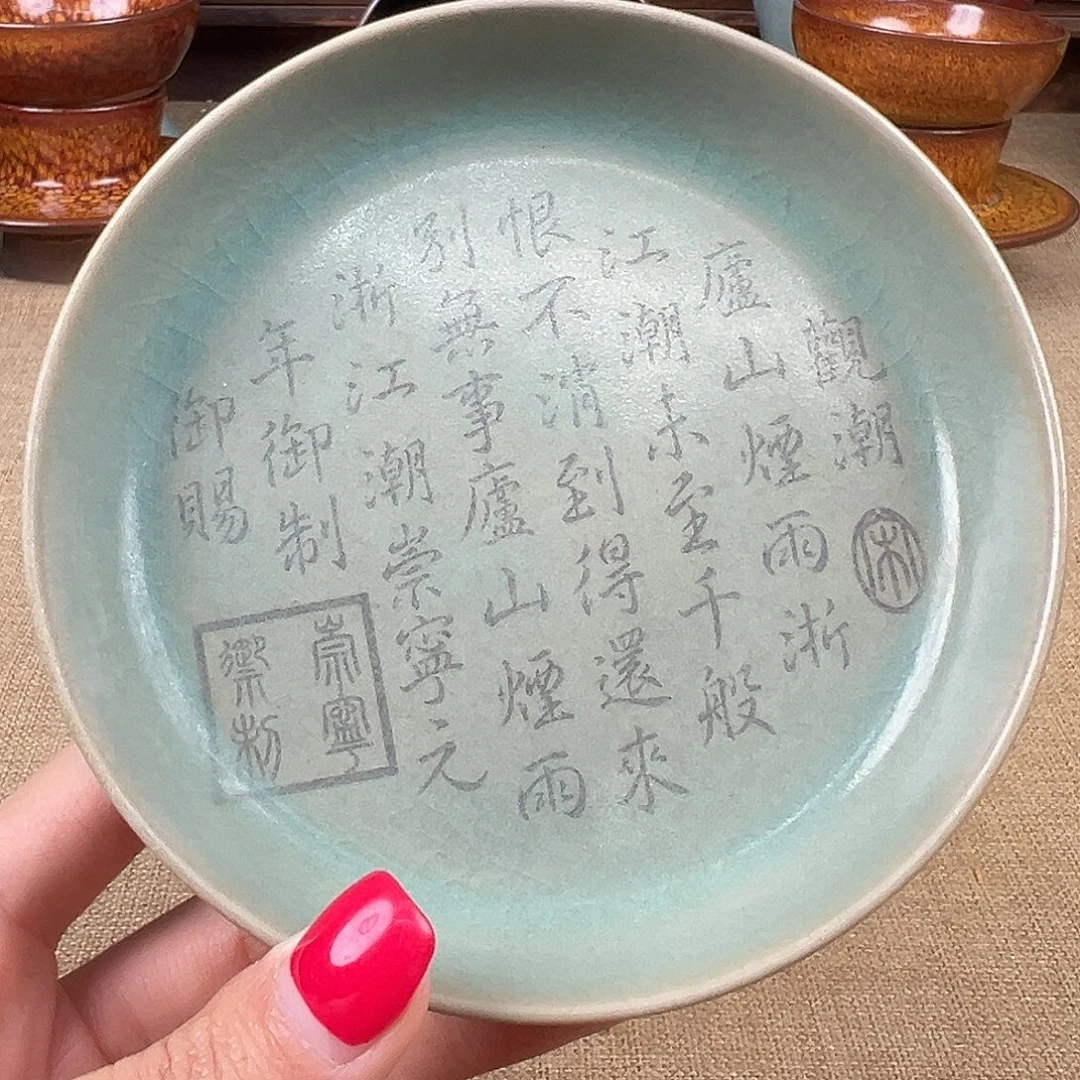 觀潮
宋
廬山煙雨淅
江潮未至千般
恨不消到得還來
別無事廬山煙雨
淅江潮崇寧元
年御制
御賜
崇寧
禦制